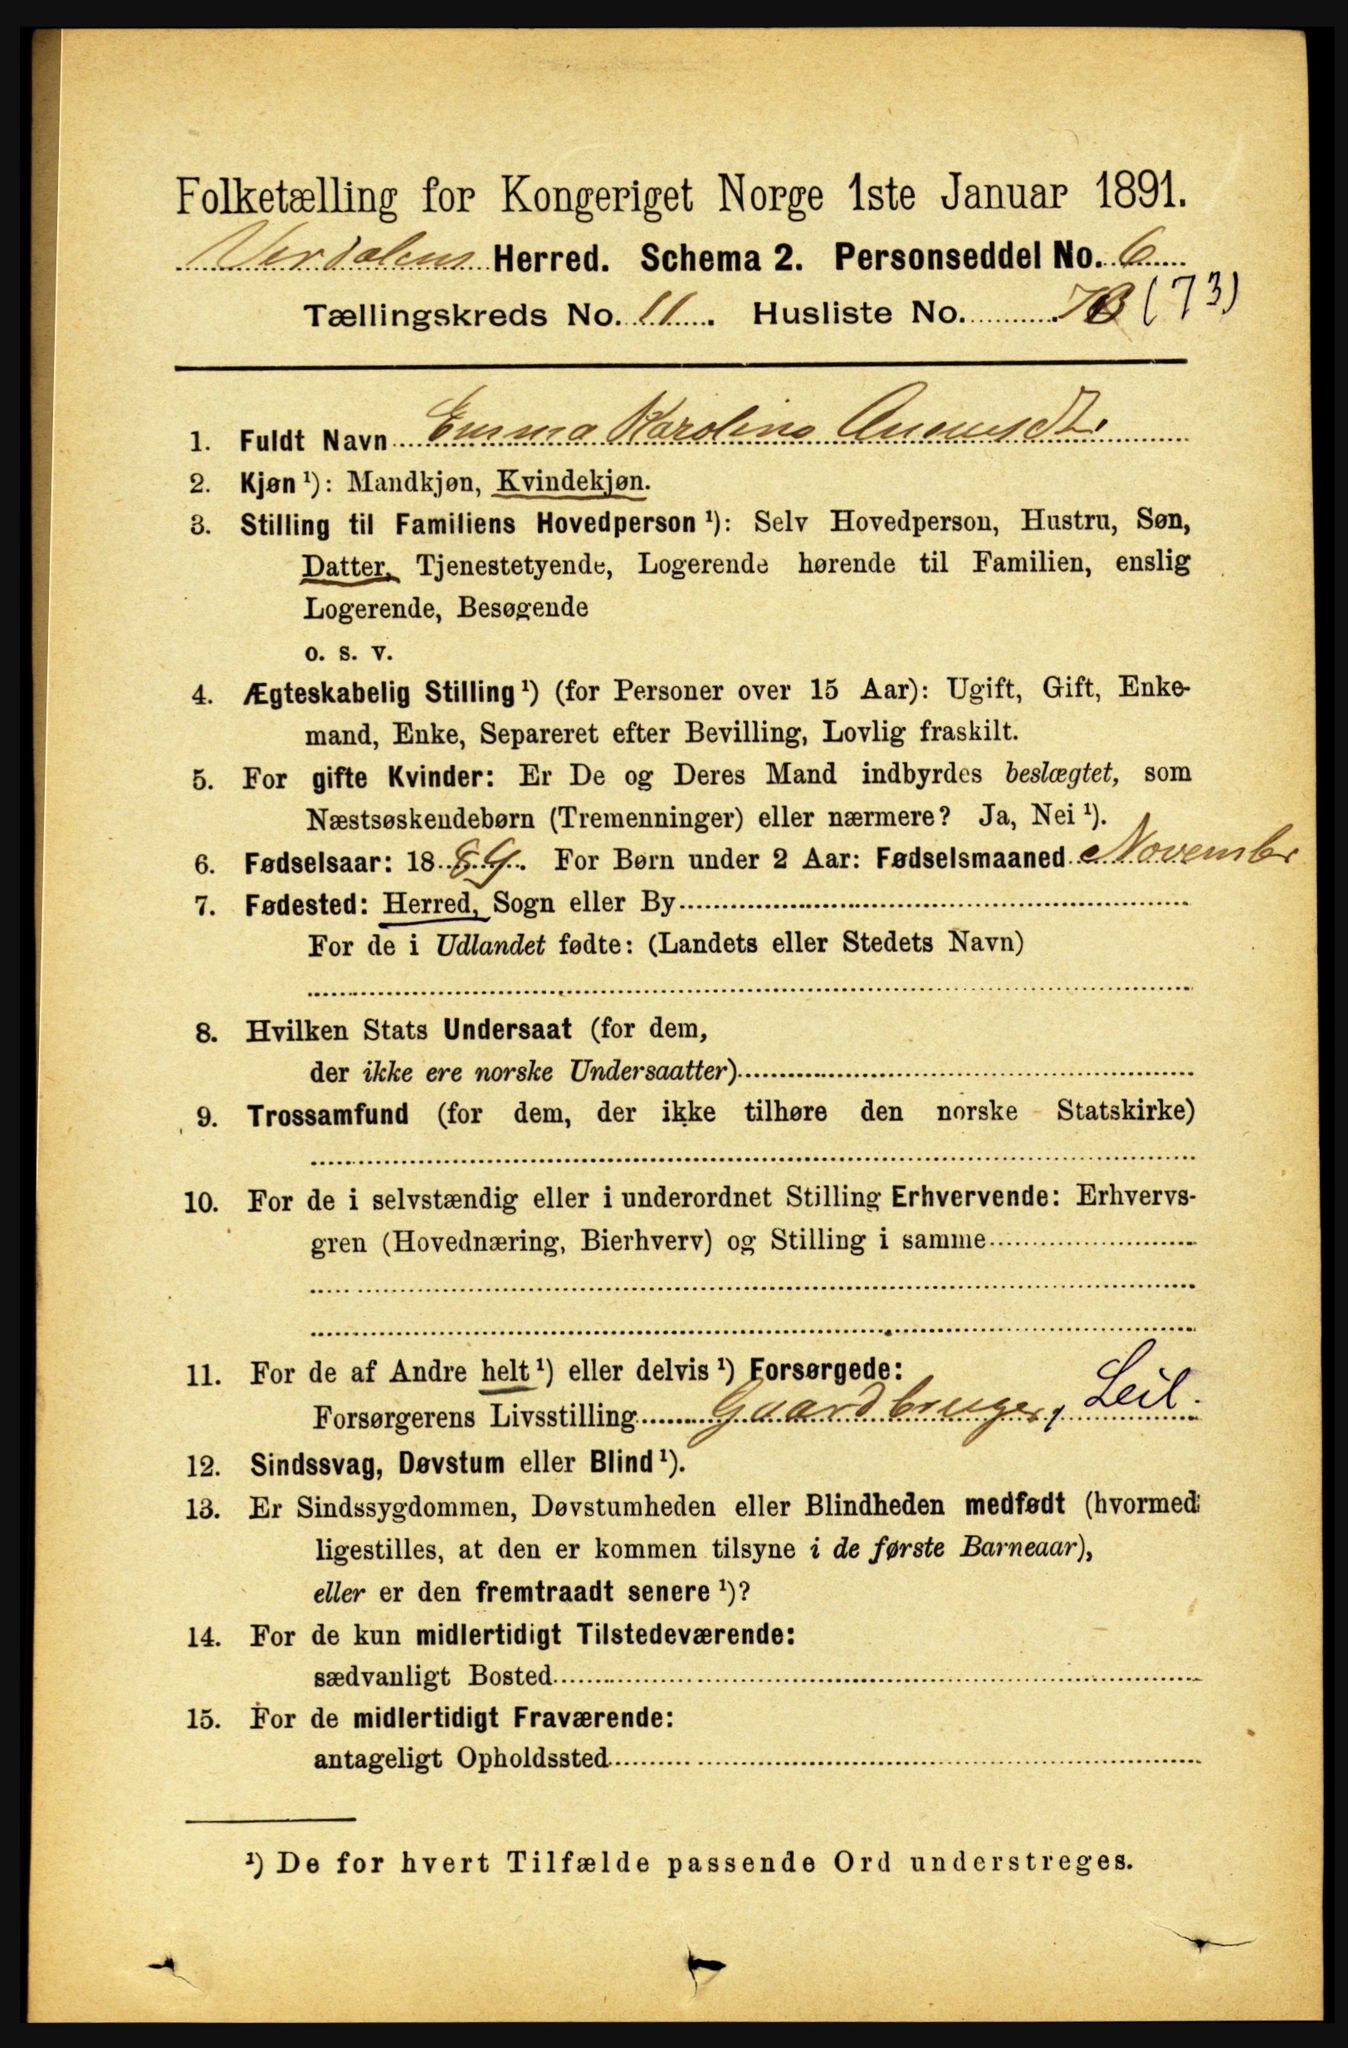 Folketælling for Kongeriget Norge 1ste Januar 1891.
Verdalens Herred. Schema 2. Personseddel No. 6
Tællingskreds No. 11. Husliste No. 73 (73)
1. Fuldt Navn Emma Karolina
2. Kjøn ¹): Mandkjøn, Kvindekjøn.
3. Stilling til Familiens Hovedperson ¹): Selv Hovedperson, Hustru, Søn,
Datter, Tjenestetyende, Logerende hørende til Familien, enslig
Logerende, Besøgende
o. s. v.
4. Ægteskabelig Stilling ¹) (for Personer over 15 Aar): Ugift, Gift, Enke-
mand, Enke, Separeret efter Bevilling, Lovlig fraskilt.
5. For gifte Kvinder: Er De og Deres Mand indbyrdes beslægtet, som
Næstsøskendebørn (Tremenninger) eller nærmere? Ja, Nei ¹).
6. Fødselsaar: 1889. For Børn under 2 Aar: Fødselsmaaned November
7. Fødested: Herred, Sogn eller By
For de i Udlandet fødte: (Landets eller Stedets Navn)
8. Hvilken Stats Undersaat (for dem,
der ikke ere norske Undersaatter)
9. Trossamfund (for dem, der ikke tilhøre den norske Statskirke)
10. For de i selvstændig eller i underordnet Stilling Erhvervende: Erhvervs-
gren (Hovednæring, Bierhverv) og Stilling i samme
11. For de af Andre helt ¹) eller delvis ¹) Forsørgede:
Forsørgerens Livsstilling Gaardbruger, Leil.
12. Sindssvag, Døvstum eller Blind ¹).
13. Er Sindssygdommen, Døvstumheden eller Blindheden medfødt (hvormed
ligestilles, at den er kommen tilsyne i de første Barneaar),
eller er den fremtraadt senere ¹)?
14. For de kun midlertidigt Tilstedeværende:
sædvanligt Bosted
15. For de midlertidigt Fraværende:
antageligt Opholdssted
¹) De for hvert Tilfælde passende Ord understreges.